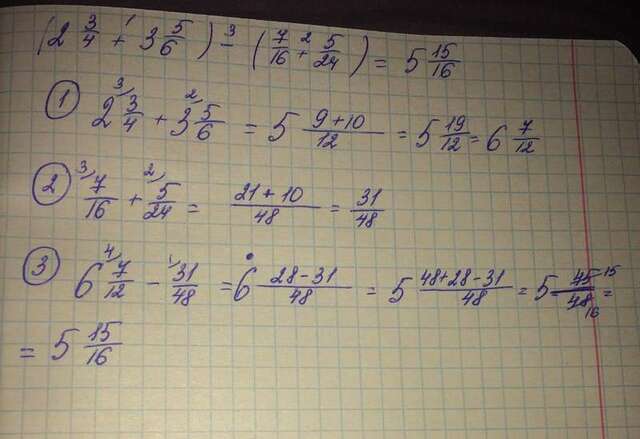 (2 3/4 +¹ 3 5/6) -³ (7/16 +² 5/24) = 5 15/16
① 2 3/4³⁾ + 3 5/6²⁾ = 5 (9+10)/12 = 5 19/12 = 6 7/12
② ³⁾7/16 + ²⁾5/24 = (21+10)/48 = 31/48
③ 6 ⁴⁾7/12 - ¹⁾31/48 = 6 (28-31)/48 = 5 (48+28-31)/48 = 5 45¹⁵/48₁₆ =
= 5 15/16